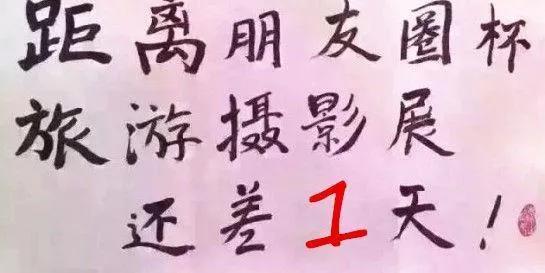 距离朋友圈杯
旅游摄影展
还差1天！